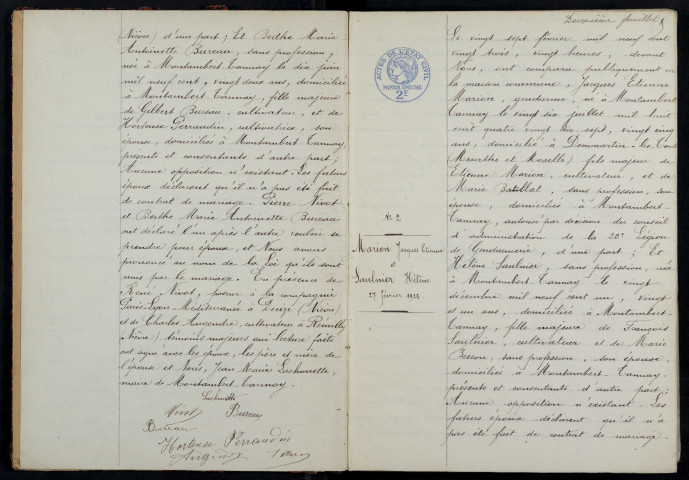 Nièvre) d'une part ; Et Berthe Marie
Antoinette Bureau, sans profession,
née à Montambert Tannay le dix juin
mil neuf cent, vingt deux ans, domiciliée
à Montambert Tannay, fille majeure
de Gilbert Bureau, cultivateur, et de
Hortense Perraudin, cultivatrice, son
épouse, domiciliés à Montambert Tannay,
présents et consentants d'autre part ;
Aucune opposition n'existant. Les futurs
époux déclarent qu'il n'a pas été fait
de contrat de mariage. Pierre Nivot
et Berthe Marie Antoinette Bureau
ont déclaré l'un après l'autre vouloir se
prendre pour époux, et Nous avons
prononcé au nom de la Loi qu'ils sont
unis par le mariage. En présence de
René Nivot, poseur à la compagnie
Paris-Lyon-Méditerranée à Decize (Nièvre)
et de Charles Hugendre, cultivateur à Rémilly
Nièvre), témoins majeurs qui lecture faite
ont signé avec les époux, les père et mère de
l'épouse et Nous, Jean Marie
maire de Montambert Tannay.
Nivot Bureau
Bureau
Hortense Perraudin
Deuxième feuillet
ACTES DE L'ETAT CIVIL
PAPIER SPÉCIAL
2F
N° 2
Marion Jacques Etienne
&
Saulnier Hélène
27 février 1923
Le vingt sept février mil neuf cent
vingt trois, vingt heures, devant
Nous, ont comparu publiquement en
la maison commune, Jacques Etienne
Marion, gendarme, né à Montambert
Tannay le vingt six juillet mil huit
cent quatre vingt dix sept, vingt cinq
ans, domicilié à Dommartin-les-Toul
Meurthe et Moselle) fils majeur de
Etienne Marion, cultivateur, et de
Marie Batillat, sans profession, son
épouse, domiciliés à Montambert-
Tannay, autorisé par décision du conseil
d'administration de la 20e Légion
de Gendarmerie, d'une part ; Et
Hélène Saulnier, sans profession, née
à Montambert-Tannay le vingt
décembre mil neuf cent un, vingt
et un ans, domiciliée à Montambert-
Tannay, fille majeure de François
Saulnier, cultivateur et de Marie
Besson, sans profession, son épouse,
domiciliés à Montambert-Tannay,
présents et consentants d'autre part ;
Aucune opposition n'existant. Les
futurs époux déclarent qu'il n'a
pas été fait de contrat de mariage.